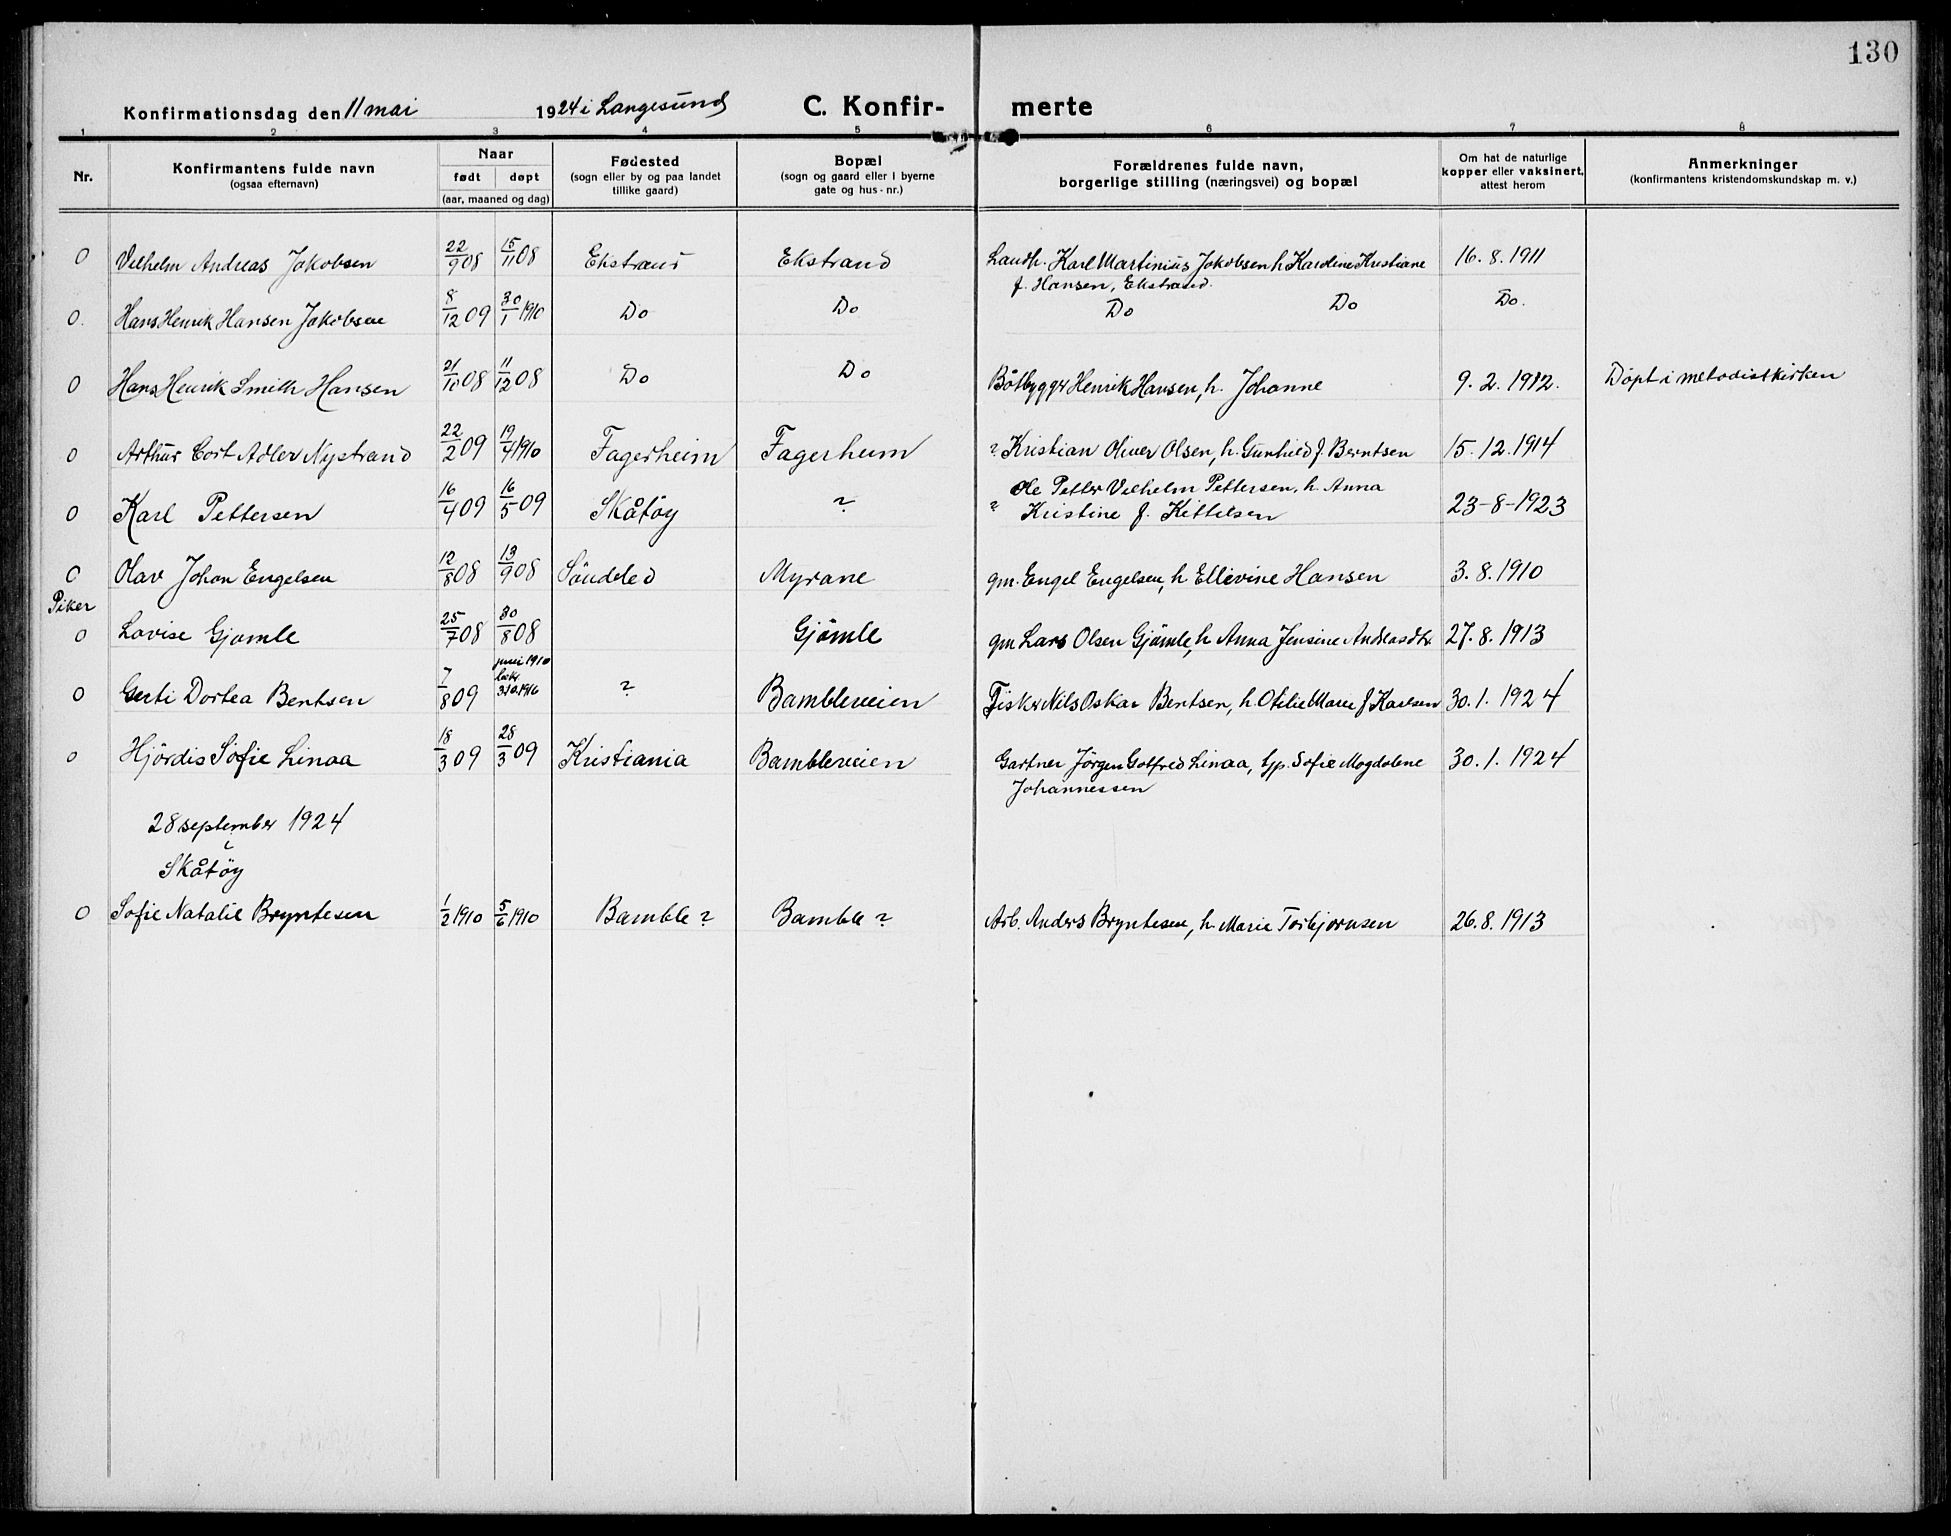 130
Konfirmationsdag den 11 mai 1924 i Langesund C. Konfir- merte
1 2 3 4 5 6 7 8
Nr. Konfirmantens fulde navn (ogsaa efternavn) Naar født døpt (aar, maaned og dag) Fødested (sogn eller by og paa landet tillike gaard) Bopæl (sogn og gaard eller i byerne gate og hus-nr.) Forældrenes fulde navn, borgerlige stilling (næringsvei) og bopæl Om hat de naturlige kopper eller vaksinert, attest herom Anmerkninger (konfirmantens kristendomskundskap m. v.)
0 Vilhelm Andreas Jakobsen 22/9 08 15/11 08 Ekstrand Ekstrand Landh. Karl Martinius Jakobsen h. Karoline Kristiane 16. 8. 1911
f. Hansen, Ekstrand.
0. Hans Henrik Hansen Jakobsen 8/12 09 30/1 1910 Do Do Do Do Do.
0 Hans Henrik Smith Hansen 21/10 08 11/12 08 Do Do Båtbygger Henrik Hansen, h. Johanne 9. 2. 1912. Döpt i metodistkirken
0 Arthur Cort Adler Nystrand 22/2 09 19/4 1910 Fagerheim Fagerheim ? Kristian Oliver Olsen, h. Gunhild f. Berntsen 15. 12. 1914
0 Karl Pettersen 16/4 09 16/5 09 Skåtöy ? ? Ole Petter Vilhelm Pettersen, h. Anna
Kristine f. Kittelsen 23-8-1923
0 Olav Johan Engelsen 12/8 08 13/9 08 Söndeled Myrane gm. Engel Engelsen, h Ellevine Hansen 3. 8. 1910
Piker
0 Lovise Gjomle 25/7 08 30/8 08 Gjömle gm Lars Olsen Gjömle, h Anna Jensine Andreasdtr. 27. 8. 1913
0 Gerti Dortea Bentsen 7/8 09 juni 1910 bekr. 3.10.1916 ? Bambleveien Fisker Nils Oskar Bentsen, h. Otilie Marie f Karlsen 30. 1. 1924
0 Hjördis Sofie Linaa 18/3 09 28/3 09 Kristiania Bambleveien Gartner Jörgen Gotfred Linaa, Sofie Magdalene 30. 1. 1924
Johannessen
28 september 1924
i
Skåtöy
0 Sofie Natalie Bryntesen 1/2 1910 5/6 1910 Bamble ? Bamble ? Arb. Anders Bryntesen, h. Marie Torbjornsen 26. 8. 1913